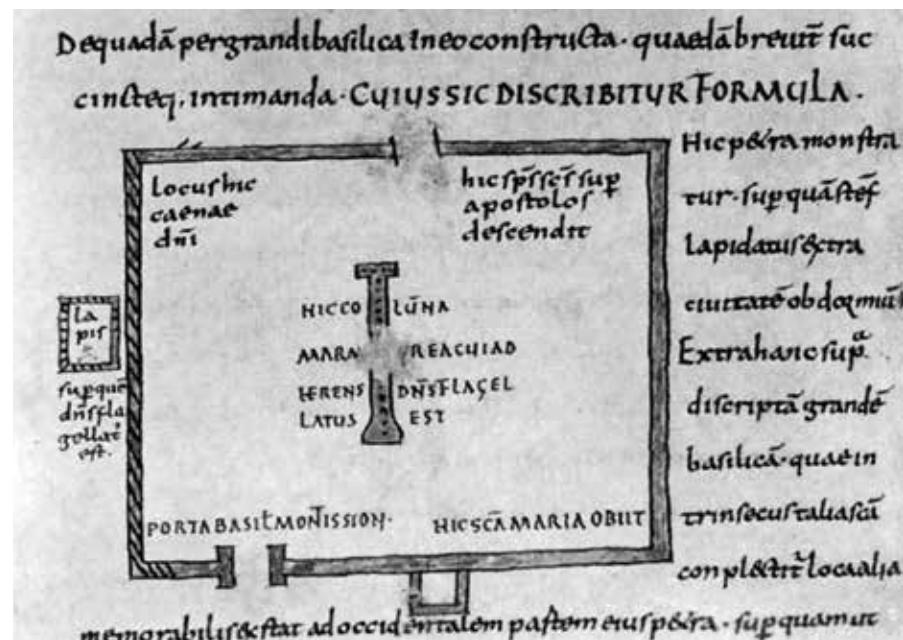 De quadā pergrandi basilica in eo constructa · quaedā breuit̄ suc
cincteq, intimanda · CUIUS SIC DISCRIBITUR FORMULA .
locus hic
caenae
dn̄i
hic sp̄s sc̄s sup̄
apostolos
descendit
la
pis
sup quē
dn̄s fla
gellat̄
est.
HIC COLŪNA
MARA REA CUI AD
HERENS DN̄S FLAGEL
LATUS EST
PORTA BASIL̄ MONT̄ISSION ·
HIC SC̄A MARIA OBIIT
Hic petra monstra
tur · sup quā stef̄
lapidatus extra
ciuitatē obdormiuit̄
Extra hanc supᵃ
discriptā grandē
basilicā · quae in
trinsecus talia scā
conplectit̄ loca alia
memorabilis exstat ad occidentalem partem eius petra · sup quam ut